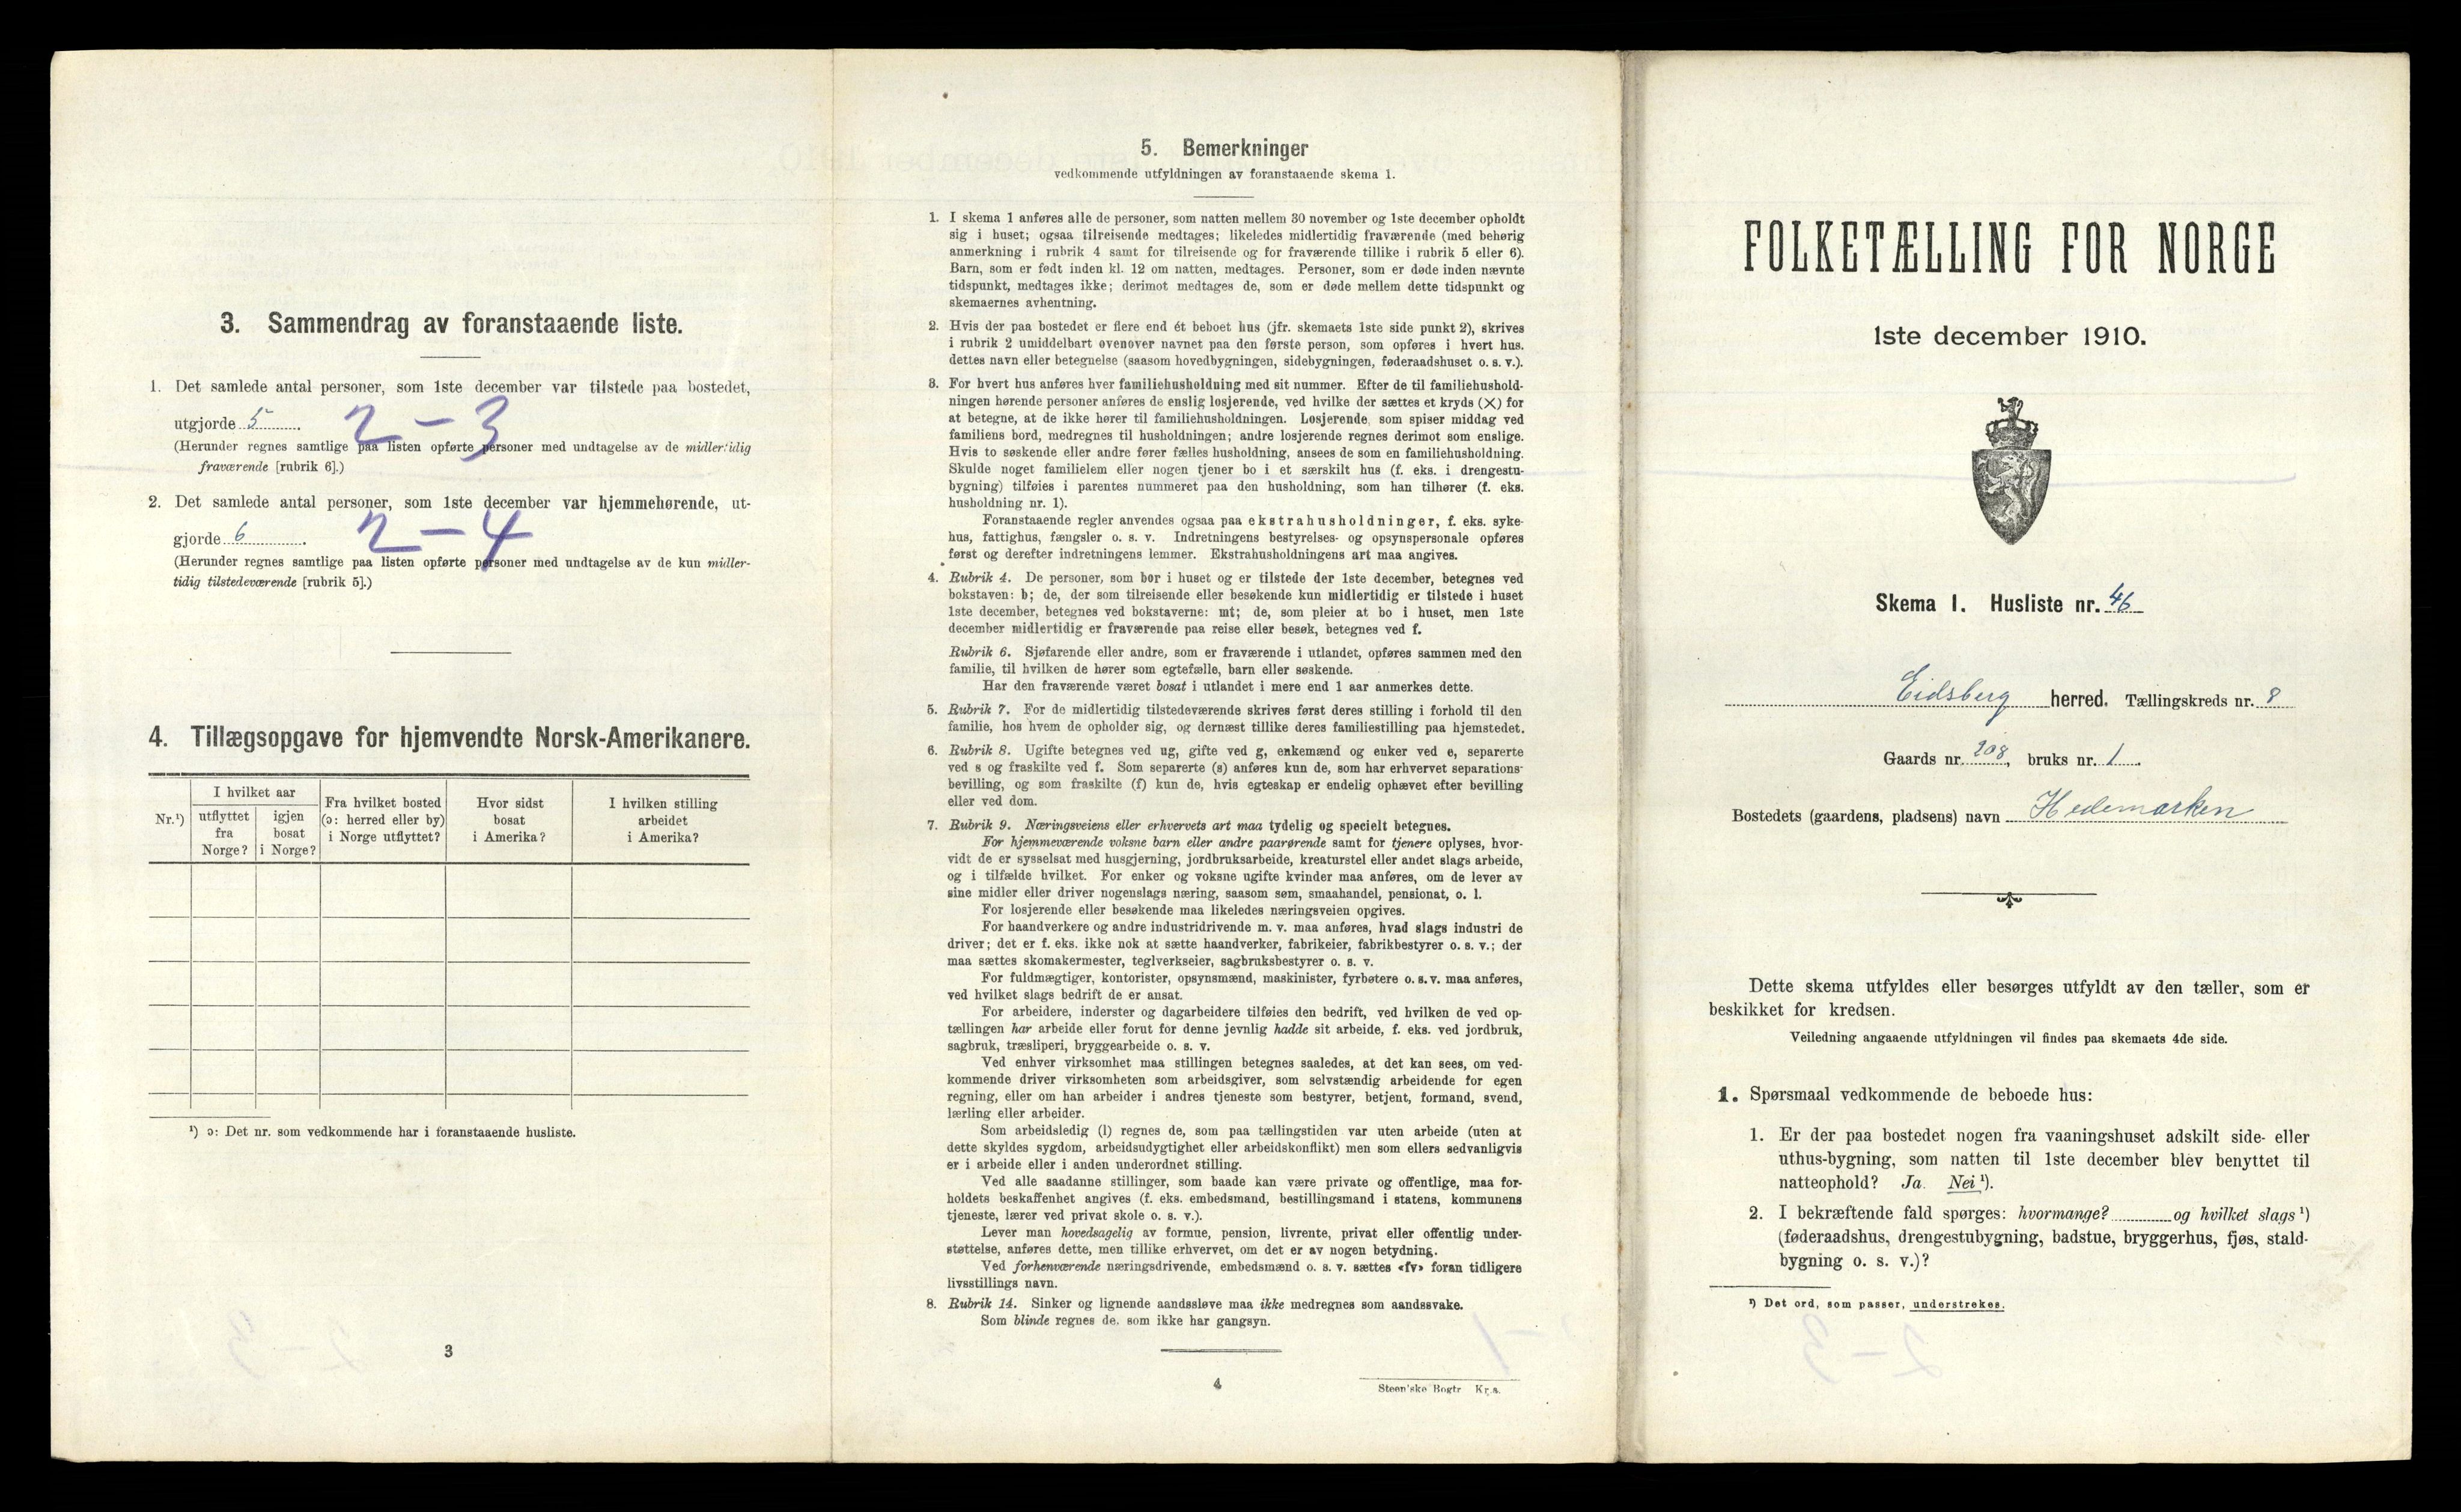 3. Sammendrag av foranstaaende liste.
1. Det samlede antal personer, som 1ste december var tilstede paa bostedet,
utgjorde 5.
2 – 3
(Herunder regnes samtlige paa listen opførte personer med undtagelse av de midlertidig
fraværende [rubrik 6].)
2. Det samlede antal personer, som 1ste december var hjemmehørende, ut-
gjorde 6.
2 – 4
(Herunder regnes samtlige paa listen opførte personer med undtagelse av de kun midler-
tidig tilstedeværende [rubrik 5].)
4. Tillægsopgave for hjemvendte Norsk-Amerikanere.
Nr.¹)
I hvilket aar
utflyttet
fra
Norge?
igjen
bosat
i Norge?
Fra hvilket bosted
(ɔ: herred eller by)
i Norge utflyttet?
Hvor sidst
bosat
i Amerika?
I hvilken stilling
arbeidet
i Amerika?
¹) ɔ: Det nr. som vedkommende har i foranstaaende husliste.
3
5. Bemerkninger
vedkommende utfyldningen av foranstaaende skema 1.
1. I skema 1 anføres alle de personer, som natten mellem 30 november og 1ste december opholdt
sig i huset; ogsaa tilreisende medtages; likeledes midlertidig fraværende (med behørig
anmerkning i rubrik 4 samt for tilreisende og for fraværende tillike i rubrik 5 eller 6).
Barn, som er født inden kl. 12 om natten, medtages. Personer, som er døde inden nævnte
tidspunkt, medtages ikke; derimot medtages de, som er døde mellem dette tidspunkt og
skemaernes avhentning.
2. Hvis der paa bostedet er flere end ét beboet hus (jfr. skemaets 1ste side punkt 2), skrives
i rubrik 2 umiddelbart ovenover navnet paa den første person, som opføres i hvert hus.
dettes navn eller betegnelse (saasom hovedbygningen, sidebygningen, føderaadshuset o. s. v.).
3. For hvert hus anføres hver familiehusholdning med sit nummer. Efter de til familiehushold-
ningen hørende personer anføres de enslig losjerende, ved hvilke der sættes et kryds (×) for
at betegne, at de ikke hører til familiehusholdningen. Losjerende, som spiser middag ved
familiens bord, medregnes til husholdningen; andre losjerende regnes derimot som enslige.
Hvis to søskende eller andre fører fælles husholdning, ansees de som en familiehusholdning.
Skulde noget familielem eller nogen tjener bo i et særskilt hus (f. eks. i drengestu-
bygning) tilføies i parentes nummeret paa den husholdning, som han tilhører (f. eks.
husholdning nr. 1).
Foranstaaende regler anvendes ogsaa paa ekstrahusholdninger, f. eks. syke-
hus, fattighus, fængsler o. s. v. Indretningens bestyrelses- og opsynspersonale opføres
først og derefter indretningens lemmer. Ekstrahusholdningens art maa angives.
4. Rubrik 4. De personer, som bor i huset og er tilstede der 1ste december, betegnes ved
bokstaven: b; de, der som tilreisende eller besøkende kun midlertidig er tilstede i huset
1ste december, betegnes ved bokstaverne: mt; de, som pleier at bo i huset, men 1ste
december midlertidig er fraværende paa reise eller besøk, betegnes ved f.
Rubrik 6. Sjøfarende eller andre, som er fraværende i utlandet, opføres sammen med den
familie, til hvilken de hører som egtefælle, barn eller søskende.
Har den fraværende været bosat i utlandet i mere end 1 aar anmerkes dette.
5. Rubrik 7. For de midlertidig tilstedeværende skrives først deres stilling i forhold til den
familie, hos hvem de opholder sig, og dernæst tillike deres familiestilling paa hjemstedet.
6. Rubrik 8. Ugifte betegnes ved ug, gifte ved g, enkemænd og enker ved e, separerte
ved s og fraskilte ved f. Som separerte (s) anføres kun de, som har erhvervet separations-
bevilling, og som fraskilte (f) kun de, hvis egteskap er endelig ophævet efter bevilling
eller ved dom.
7. Rubrik 9. Næringsveiens eller erhvervets art maa tydelig og specielt betegnes.
For hjemmeværende voksne barn eller andre paarørende samt for tjenere oplyses, hvor-
vidt de er sysselsat med husgjerning, jordbruksarbeide, kreaturstel eller andet slags arbeide,
og i tilfælde hvilket. For enker og voksne ugifte kvinder maa anføres, om de lever av
sine midler eller driver nogenslags næring, saasom søm, smaahandel, pensionat, o. l.
For losjerende eller besøkende maa likeledes næringsveien opgives.
For haandverkere og andre industridrivende m. v. maa anføres, hvad slags industri de
driver; det er f. eks. ikke nok at sætte haandverker, fabrikeier, fabrikbestyrer o. s. v.; der
maa sættes skomakermester, teglverkseier, sagbruksbestyrer o. s. v.
For fuldmægtiger, kontorister, opsynsmænd, maskinister, fyrbøtere o. s. v. maa anføres,
ved hvilket slags bedrift de er ansat.
For arbeidere, inderster og dagarbeidere tilføies den bedrift, ved hvilken de ved op-
tællingen har arbeide eller forut for denne jevnlig hadde sit arbeide, f. eks. ved jordbruk,
sagbruk, træsliperi, bryggearbeide o. s. v.
Ved enhver virksomhet maa stillingen betegnes saaledes, at det kan sees, om ved-
kommende driver virksomheten som arbeidsgiver, som selvstændig arbeidende for egen
regning, eller om han arbeider i andres tjeneste som bestyrer, betjent, formand, svend,
lærling eller arbeider.
Som arbeidsledig (l) regnes de, som paa tællingstiden var uten arbeide (uten at
dette skyldes sygdom, arbeidsudygtighet eller arbeidskonflikt) men som ellers sedvanligvis
er i arbeide eller i anden underordnet stilling.
Ved alle saadanne stillinger, som baade kan være private og offentlige, maa for-
holdets beskaffenhet angives (f. eks. embedsmand, bestillingsmand i statens, kommunens
tjeneste, lærer ved privat skole o. s. v.).
Lever man hovedsagelig av formue, pension, livrente, privat eller offentlig under-
støttelse, anføres dette, men tillike erhvervet, om det er av nogen betydning.
Ved forhenværende næringsdrivende, embedsmænd o. s. v. sættes «fv» foran tidligere
livsstillings navn.
8. Rubrik 14. Sinker og lignende aandssløve maa ikke medregnes som aandssvake.
Som blinde regnes de, som ikke har gangsyn.
4
Steen'ske Bogtr Kr.a.
FOLKETÆLLING FOR NORGE
1ste december 1910.
Skema 1. Husliste nr. 46
Eidsberg herred. Tællingskreds nr. 8
Gaards nr. 208, bruks nr. 1.
Bostedets (gaardens, pladsens) navn Hedemarken
Dette skema utfyldes eller besørges utfyldt av den tæller, som er
beskikket for kredsen.
Veiledning angaaende utfyldningen vil findes paa skemaets 4de side.
1. Spørsmaal vedkommende de beboede hus:
1. Er der paa bostedet nogen fra vaaningshuset adskilt side- eller
uthus-bygning, som natten til 1ste december blev benyttet til
natteophold? Ja. Nei ¹).
2. I bekræftende fald spørges: hvormange? og hvilket slags ¹)
(føderaadshus, drengestubygning, badstue, bryggerhus, fjøs, stald-
bygning o. s. v.)?
¹) Det ord, som passer, understrekes.